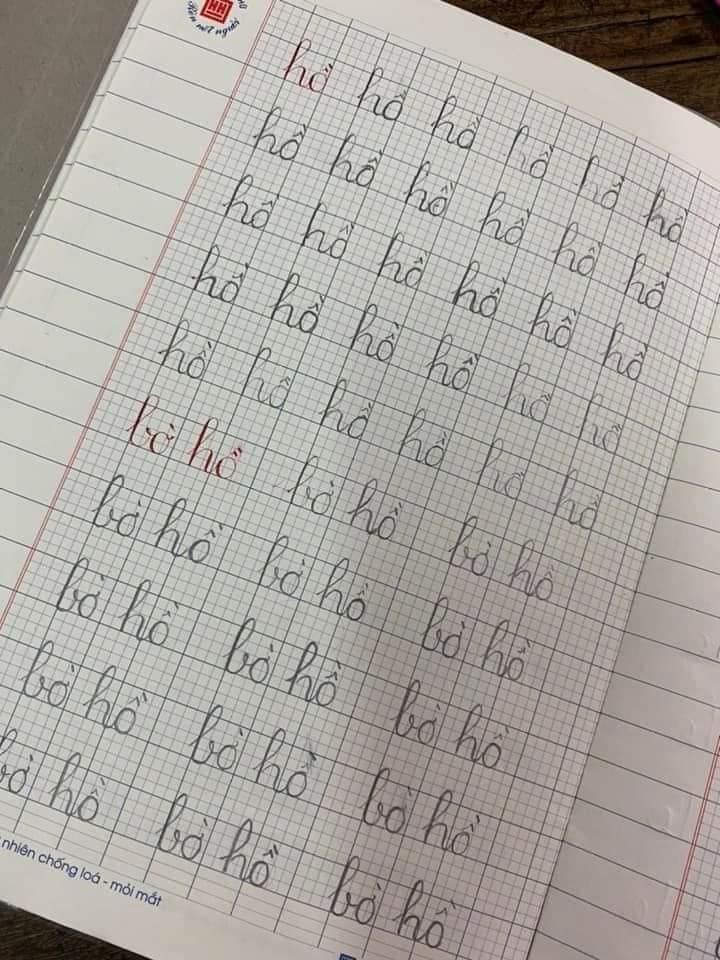 HH
hồ hồ hồ hồ hồ hồ
hồ hồ hồ hồ hồ hồ
hồ hồ hồ hồ hồ hồ
hồ hồ hồ hồ hồ hồ
hồ hồ hồ hồ hồ hồ
bờ hồ bờ hồ bờ hồ
bờ hồ bờ hồ bờ hồ
bờ hồ bờ hồ bờ hồ
bờ hồ bờ hồ bờ hồ
bờ hồ bờ hồ bờ hồ
nhiên chống loá - mỏi mắt